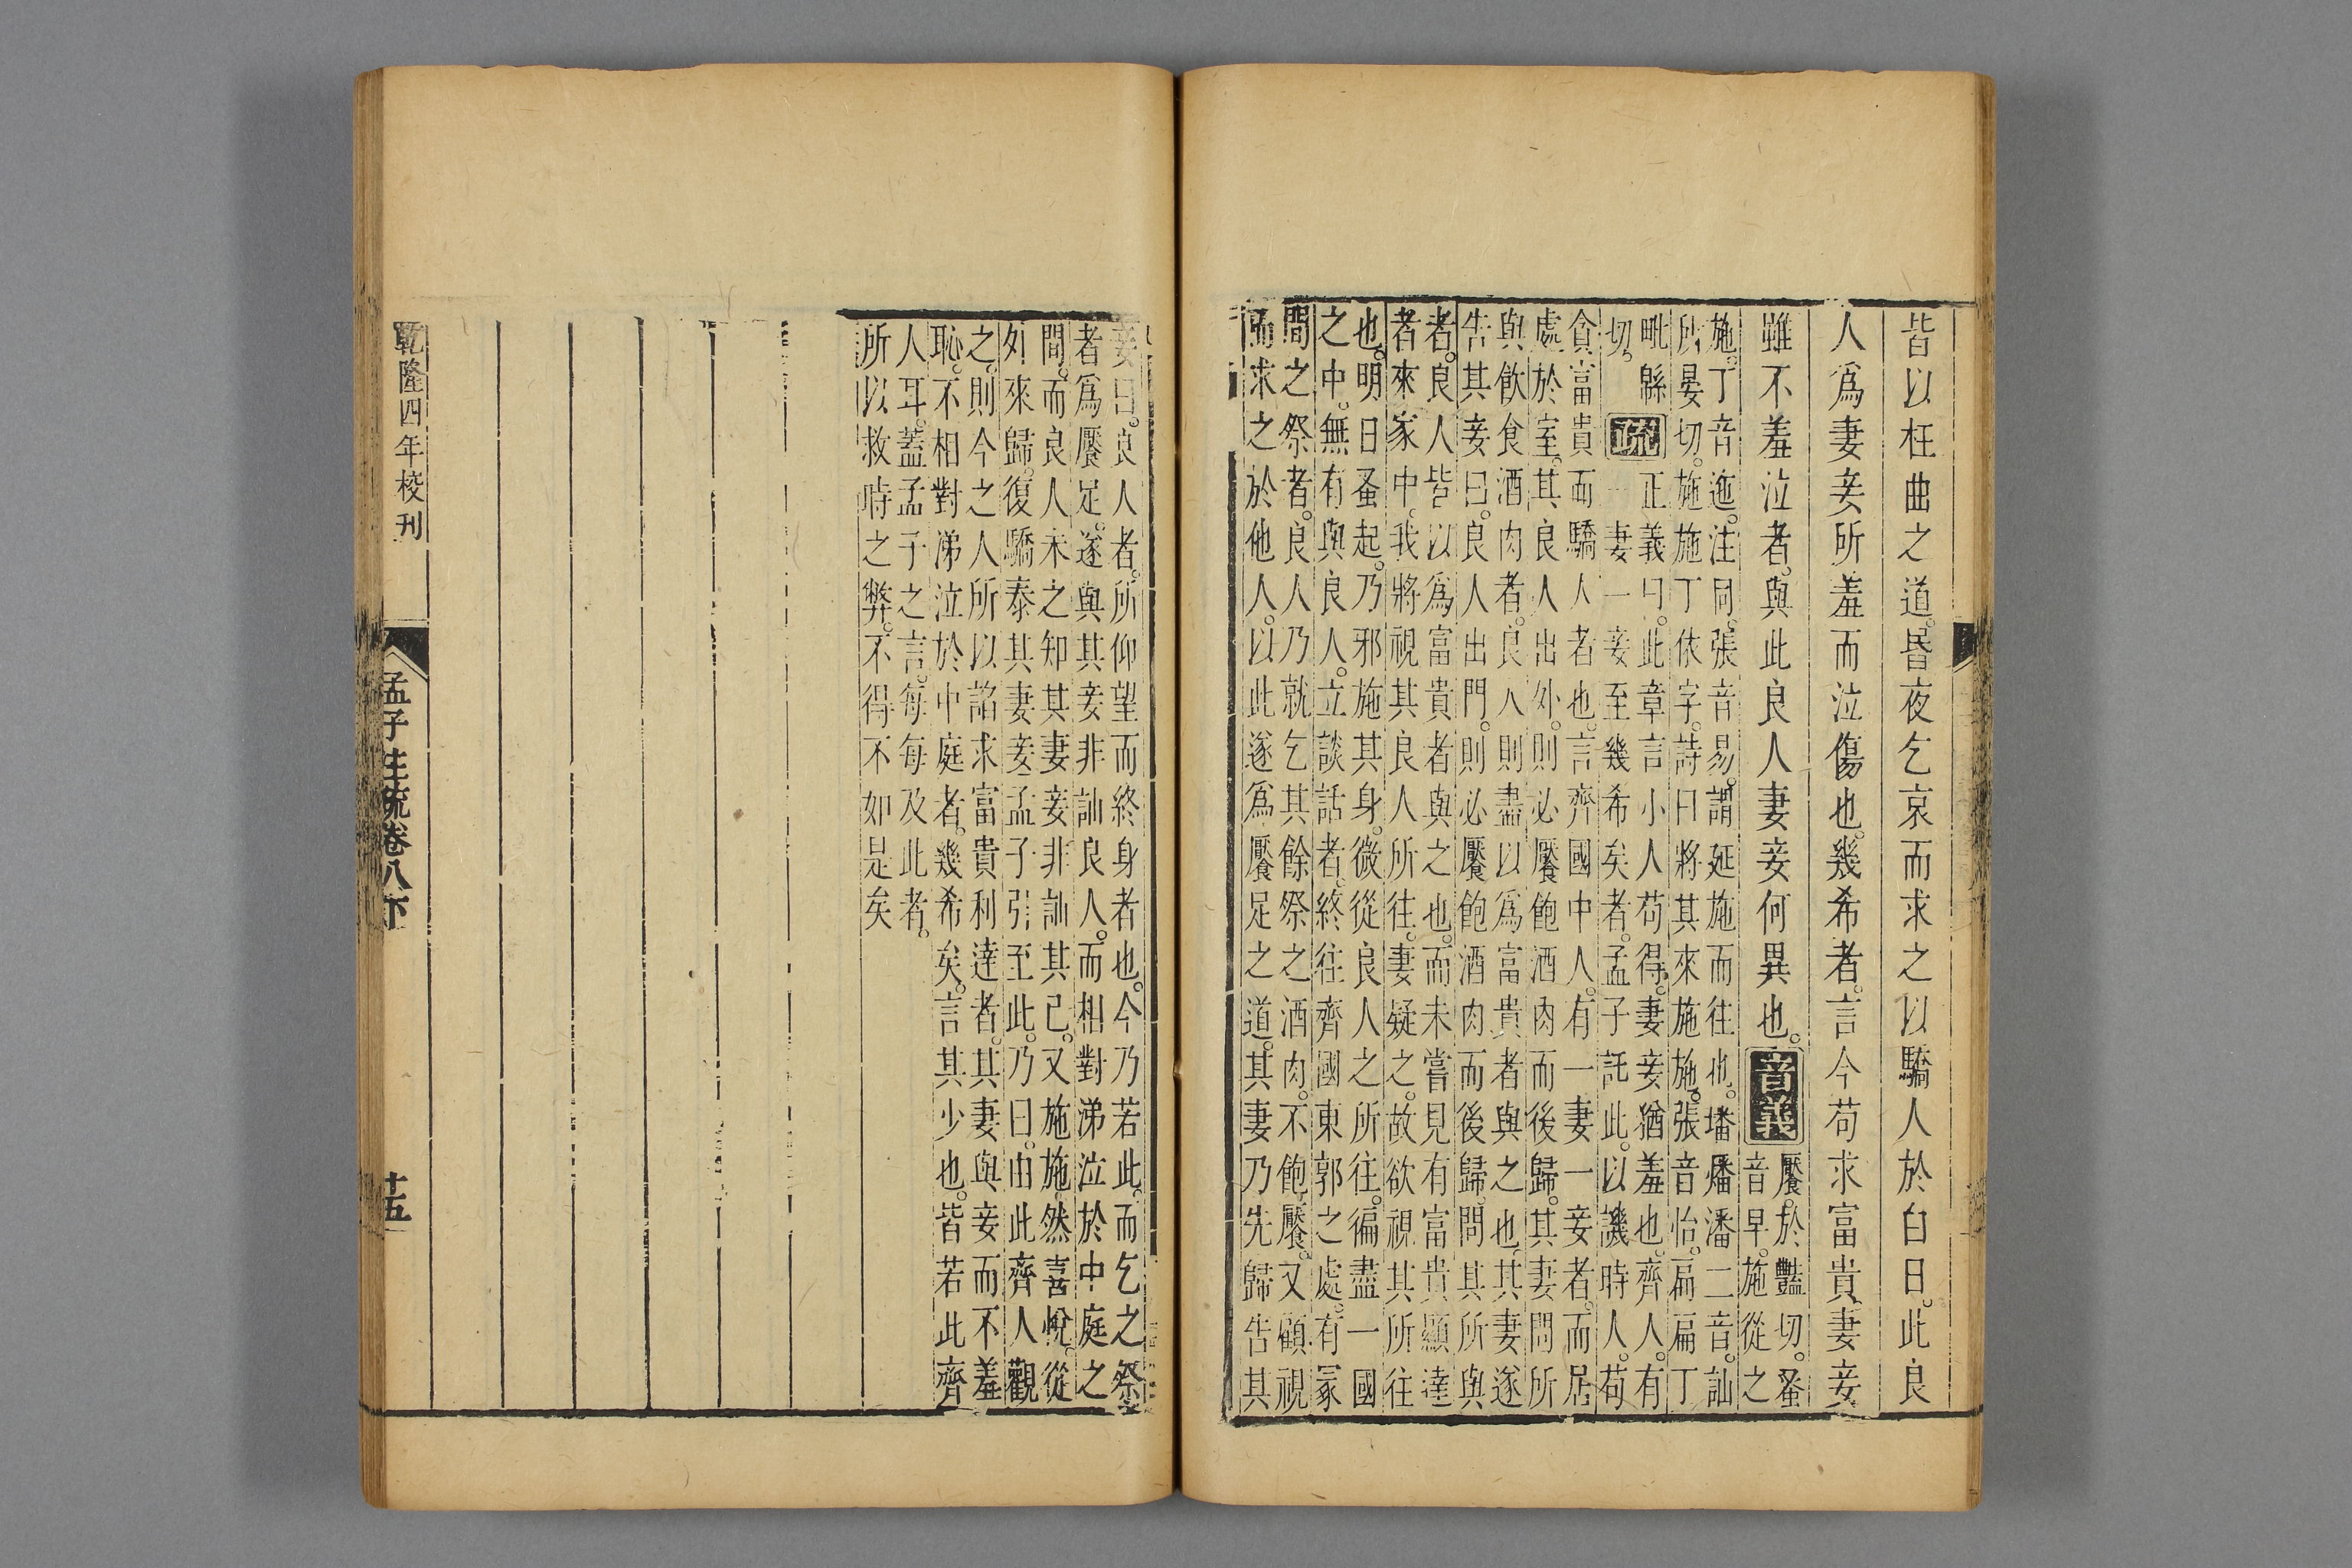 皆以枉曲之道。昬夜乞哀而求之。以驕人於白日。此良
人爲妻妾所羞而泣傷也。幾希者。言今苟求富貴。妻妾
雖不羞泣者。與此良人妻妾何異也。
音義
饜。於豔切。蚤
音早。施從之
施。丁音迤。注同。張音易。謂延施而往也。墦燔潘二音。訕
所晏切。施施丁依字。詩曰將其來施施。張音怡。扁扁丁
毗緜
切。
疏
正義曰。此章言小人苟得。妻妾猶羞也。齊人。有
一妻一妾至幾希矣者。孟子託此。以譏時人。苟
貪富貴而驕人者也。言齊國中人。有一妻一妾者。而居
處於室。其良人出外。則必饜飽酒肉而後歸。其妻問所
與飲食酒肉者。良人則盡以爲富貴者與之也。其妻遂
告其妾曰。良人出門。則必饜飽酒肉而後歸。問其所與
者。良人皆以爲富貴者與之也。而未嘗見有富貴顯達
者來家中。我將視其良人所往。妻疑之。故欲視其所往
也。明日蚤起。乃邪施其身。微從良人之所往。徧盡一國
之中。無有與良人。立談話者。終往齊國東郭之處。有冢
間之祭者。良人乃就乞其餘祭之酒肉。不飽饜。又顧視
而求之於他人。以此遂爲饜足之道。其妻乃先歸告其
妾曰。良人者。所仰望而終身者也。今乃若此。而乞之祭
者爲饜足。遂與其妾非訕良人。而相對涕泣於中庭之
間。而良人未之知其妻妾非訕其己。又施施然喜悅。從
外來歸。復驕泰其妻妾。孟子引至此。乃曰。由此齊人觀
之。則今之人所以諂求富貴利達者。其妻與妾而不羞
恥。不相對涕泣於中庭者。幾希矣。言其少也。皆若此齊
人耳。蓋孟子之言。每每及此者。
所以救時之弊。不得不如是矣
乾隆四年校刊
孟子注疏卷八下